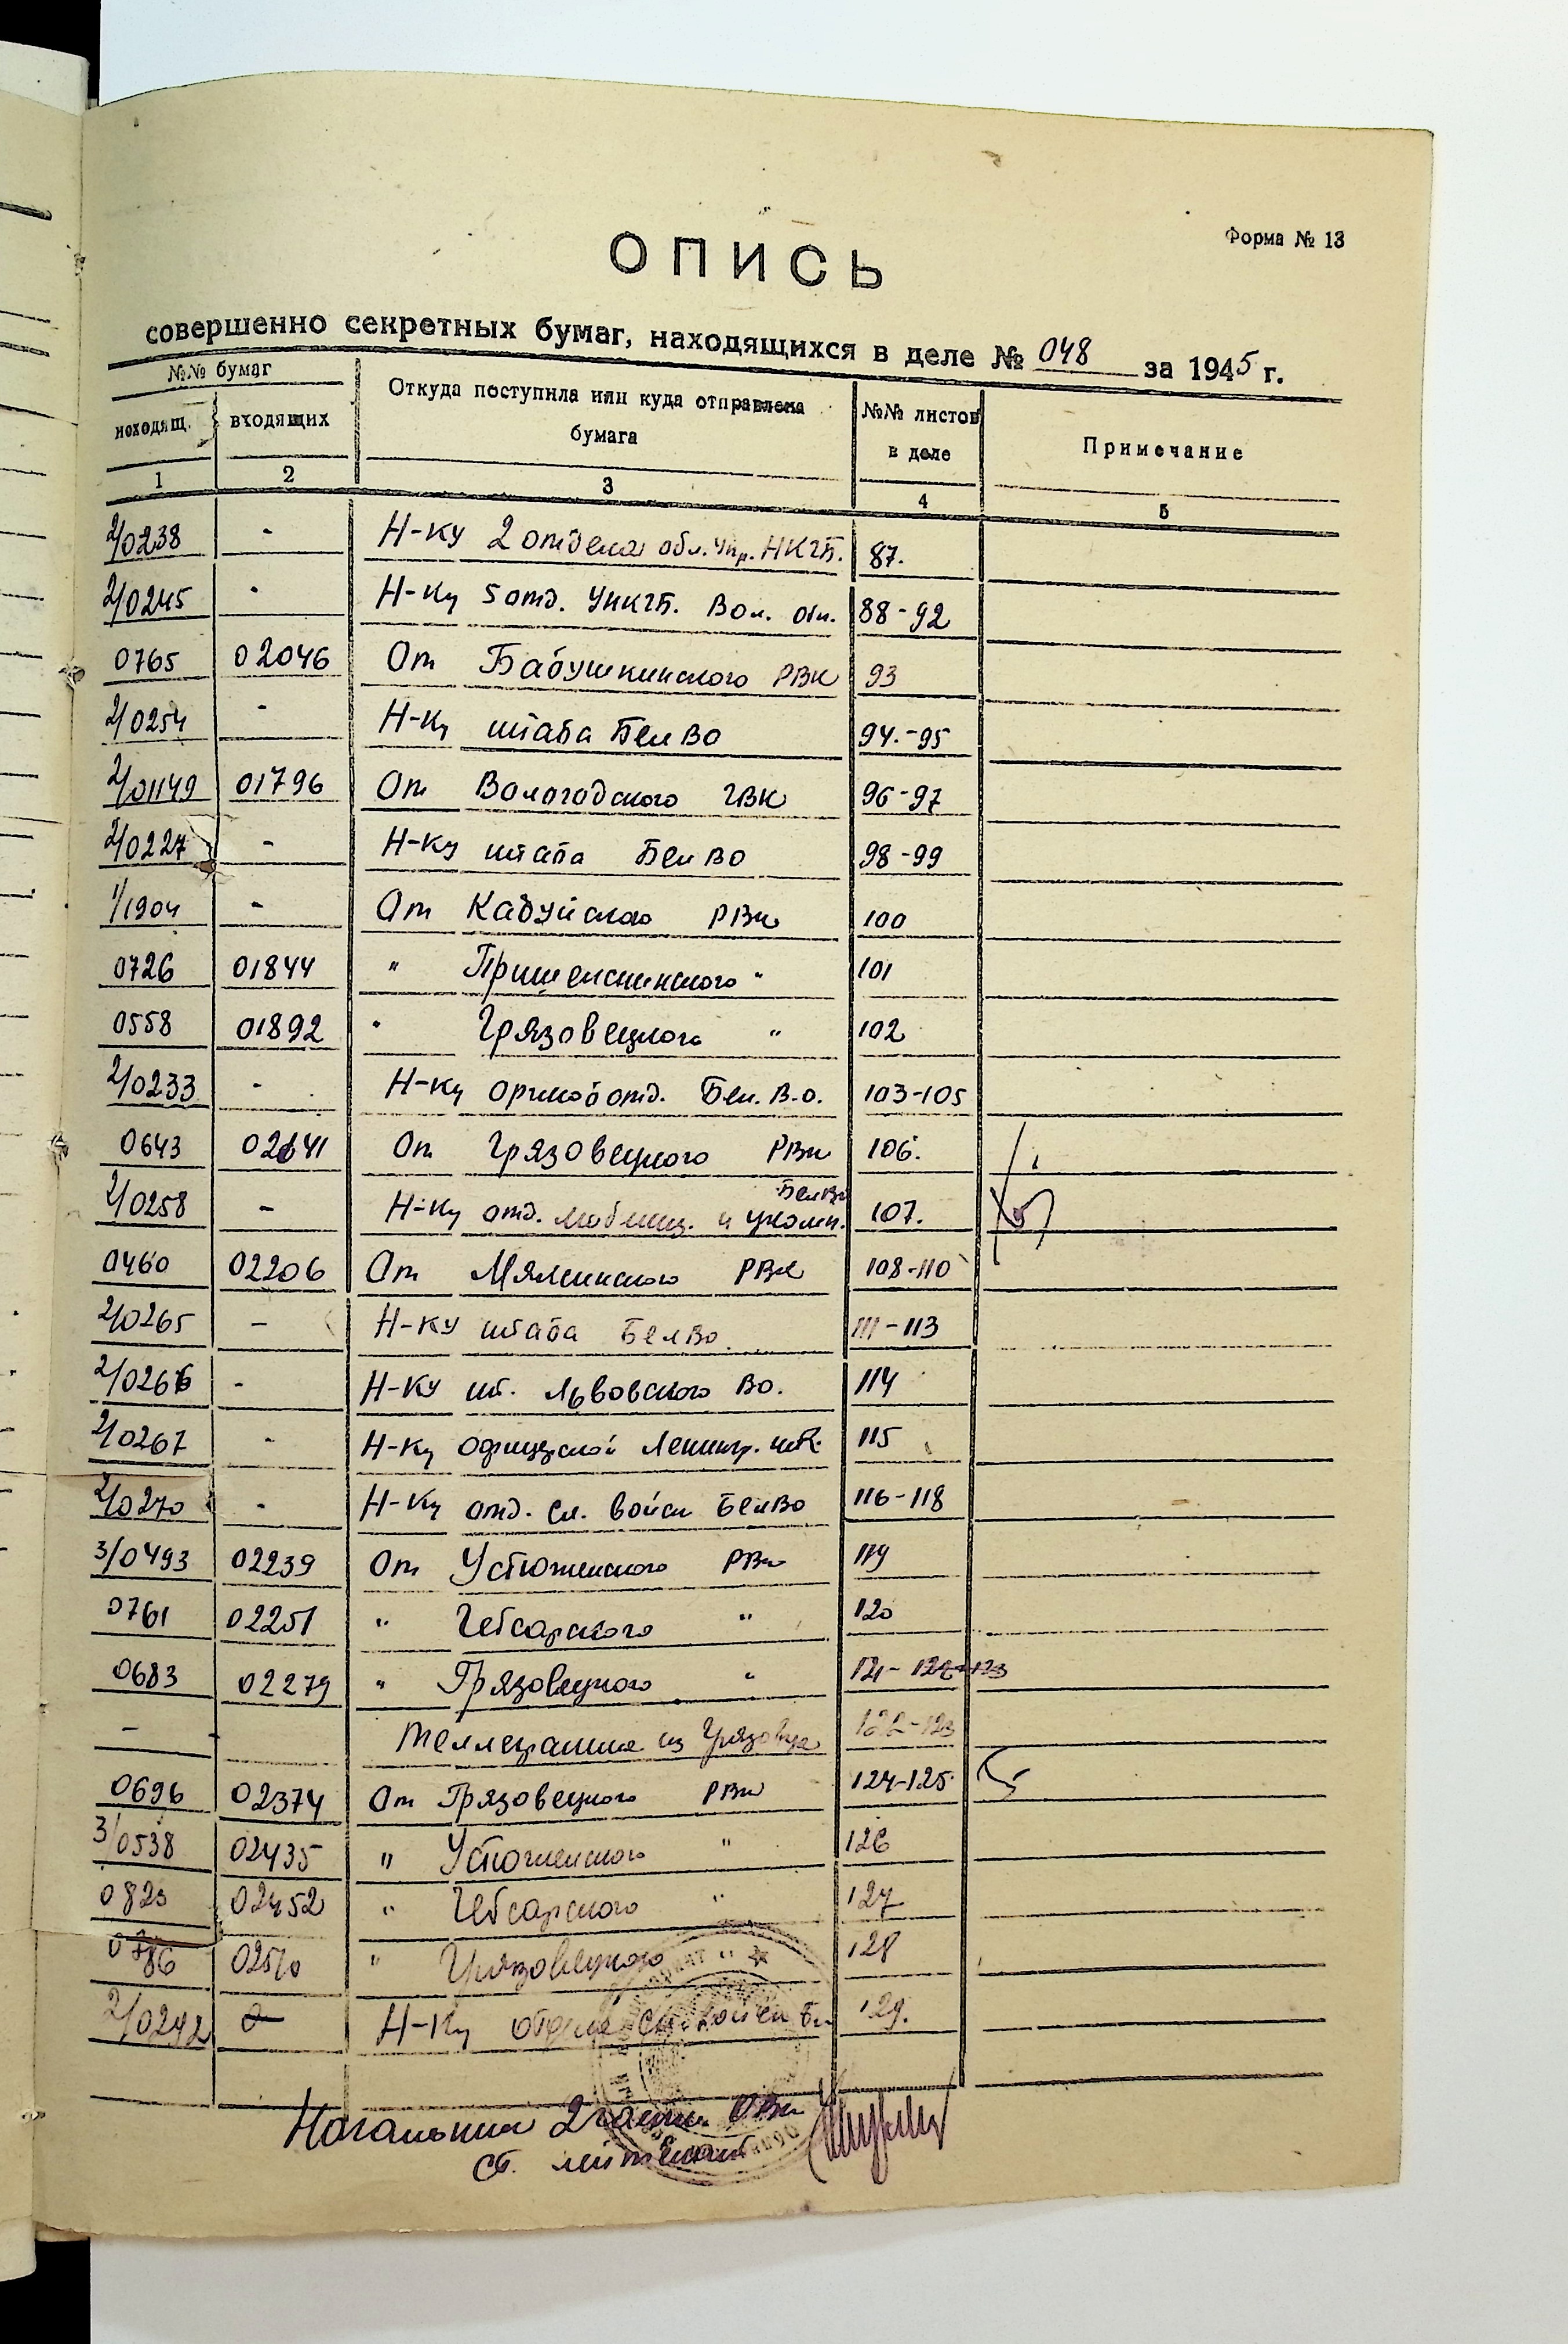 Форма № 13
ОПИСЬ
совершенно секретных бумаг, находящихся в деле № 048 за 1945 г.
№№ бумаг
исходящ. входящих Откуда поступила или куда отправлена бумага №№ листов в деле Примечание
1 2 3 4 5
2/0238 - Н-ку 2 отдела обл. Упр. НКГБ. 87.
2/0245 - Н-ку 5 отд. УНКГБ. Вол. обл. 88-92
0765 02046 От Бабушкинского РВК 93
2/0254 - Н-ку штаба БелВО 94.-95
2/01149 01796 От Вологодского ГВК 96-97
2/0227 - Н-ку штаба БелВО 98-99
1/1904 - От Кадуйского РВК 100
0726 01844 " Пришекснинского " 101
0558 01892 " Грязовецкого " 102
2/0233 - Н-ку оргмоботд. Бел. В.О. 103-105
0643 От Грязовецкого РВК 106.
2/0258 - Н-ку отд. мобилиз. и укомп. БелВО 107.
0460 02206 От Мяксинского РВК 108-110
2/0265 - Н-ку штаба БелВО 111-113
2/0266 - Н-ку шт. Львовского ВО. 114
2/0267 - Н-ку офицерской Ленингр. 115
2/0270 - Н-ку отд. сл. войск БелВО 116-118
3/0493 02239 От Устюженского РВК 119
0761 02251 " Чебсарского " 120
0683 02279 " Грязовецкого " 121-
- Телеграмма из Грязовца 122-123
0696 02374 От Грязовецкого РВК 124-125
3/0538 02435 " Устюженского " 126
0823 02452 " Чебсарского " 127
" Грязовецкого " 128
2/0242 - Н-ку отдела сл. войск 129.
Начальник 2 части ОВК
ст. лейтенант